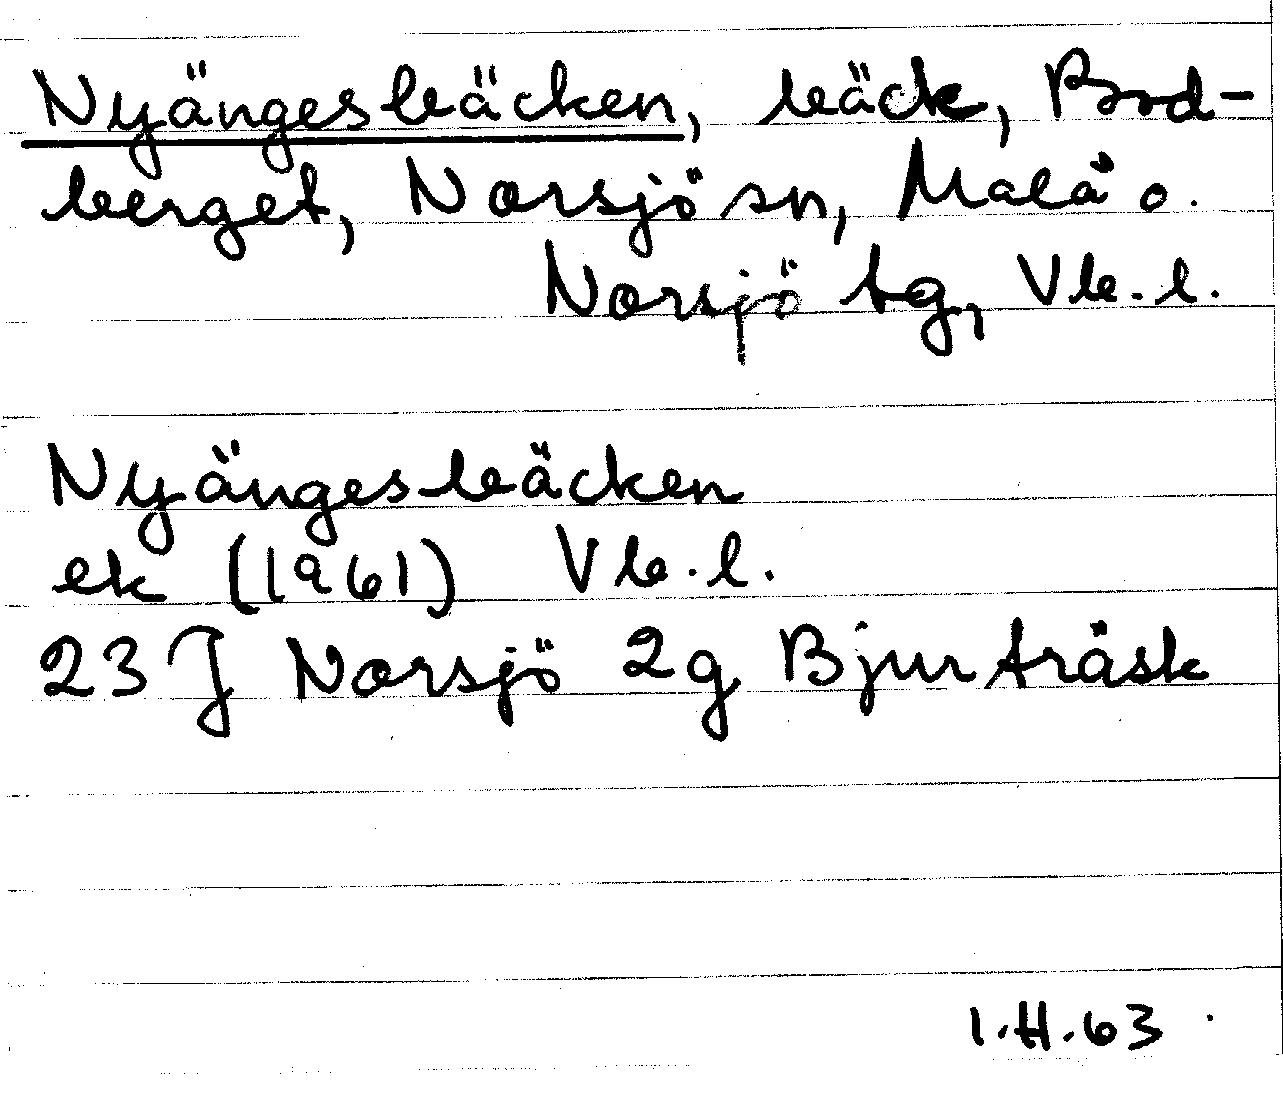 Nyängesbäcken, bäck, Bod-
berget, Norsjö sn, Malå o.
Norsjö tg, Vb. l.
Nyängesbäcken
ek (1961) Vb. l.
23 J Norsjö 2g Bjurträsk
I.H.63